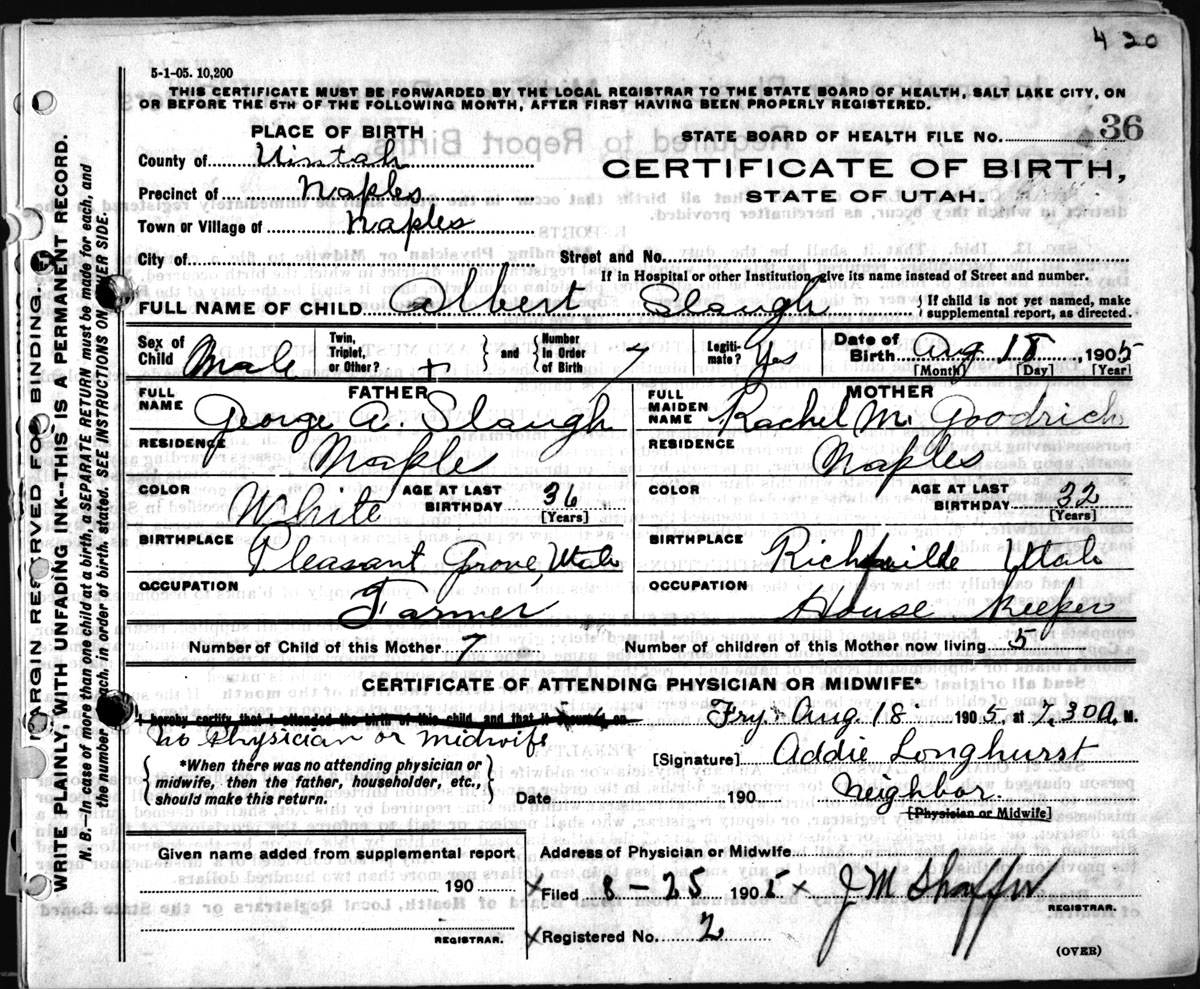 4 20
5-1-05. 10,200
THIS CERTIFICATE MUST BE FORWARDED BY THE LOCAL REGISTRAR TO THE STATE BOARD OF HEALTH, SALT LAKE CITY, ON
OR BEFORE THE 5TH OF THE FOLLOWING MONTH, AFTER FIRST HAVING BEEN PROPERLY REGISTERED.
PLACE OF BIRTH
STATE BOARD OF HEALTH FILE No. 36
County of Uintah
CERTIFICATE OF BIRTH,
Precinct of Naples
STATE OF UTAH.
Town or Village of Naples
City of Street and No.
If in Hospital or other Institution, give its name instead of Street and number.
FULL NAME OF CHILD Albert Slaugh { If child is not yet named, make
supplemental report, as directed.
Sex of Child Male Twin, Triplet, or Other? + } and { Number in Order of Birth 7 Legiti-mate? Yes Date of Birth Aug 18 1905
[Month] [Day] [Year]
FATHER
FULL NAME George A. Slaugh
MOTHER
FULL MAIDEN NAME Rachel M. Goodrich
RESIDENCE Maple
RESIDENCE Naples
COLOR White AGE AT LAST BIRTHDAY 36 [Years]
COLOR AGE AT LAST BIRTHDAY 32 [Years]
BIRTHPLACE Pleasant Grove, Utah
BIRTHPLACE Utah
OCCUPATION Farmer
OCCUPATION House Keeper
Number of Child of this Mother 7 Number of children of this Mother now living 5
CERTIFICATE OF ATTENDING PHYSICIAN OR MIDWIFE*
I hereby certify that I attended the birth of this child, and that it occurred on Fry. Aug 18 1905, at 7.30 A. M.
No Physician or midwife
*When there was no attending physician or
midwife, then the father, householder, etc.,
should make this return.
[Signature] Addie Longhurst
Date 190 Neighbor
[Physician or Midwife]
Given name added from supplemental report
190
REGISTRAR.
Address of Physician or Midwife
x Filed 8-25 1905 x J M Shaffer
REGISTRAR.
x Registered No. 2
(OVER)
MARGIN RESERVED FOR BINDING.
WRITE PLAINLY, WITH UNFADING INK--THIS IS A PERMANENT RECORD.
N. B.--In case of more than one child at a birth, a SEPARATE RETURN must be made for each, and
the number of each, in order of birth, stated. SEE INSTRUCTIONS ON OTHER SIDE.